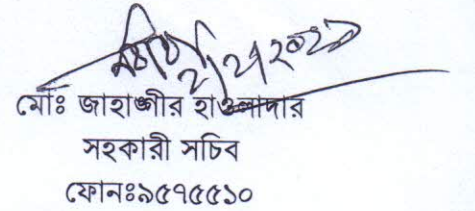 মোঃ জাহাঙ্গীর হাওলাদার
সহকারী সচিব
ফোনঃ৯৫৭৫৫১০